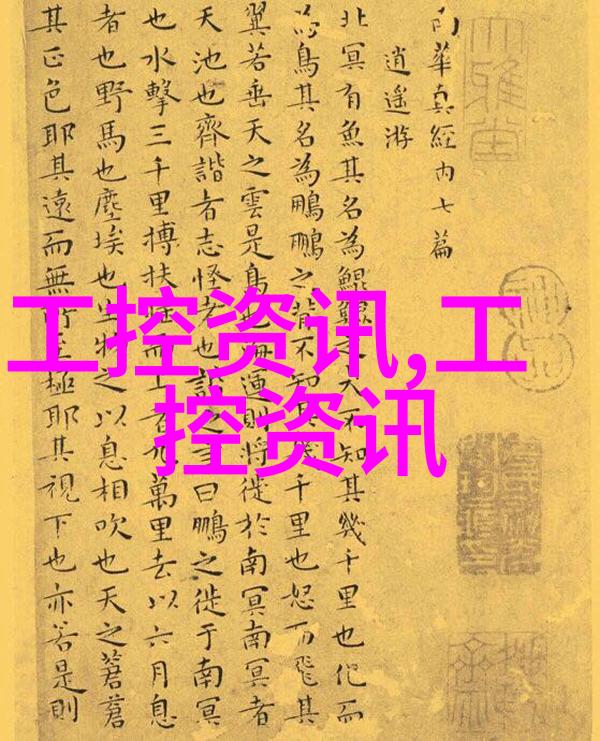 南華真經内七篇
逍遙游
北冥有魚其名為鯤鯤之大不知其幾千里也化而
為鳥其名為鵬鵬之背不知其幾千里也怒而飛其
翼若垂天之雲是鳥也海運則將徙於南冥南冥者
天池也齊諧者志怪者也諧之言曰鵬之徙于南冥
也水擊三千里摶扶搖而上者九萬里去以六月息
者也野馬也塵埃也生物之以息相吹也天之蒼蒼
其正色耶其遠而無所至極耶其視下也亦若是則
大雅堂
神品
工控资讯,工
控资讯